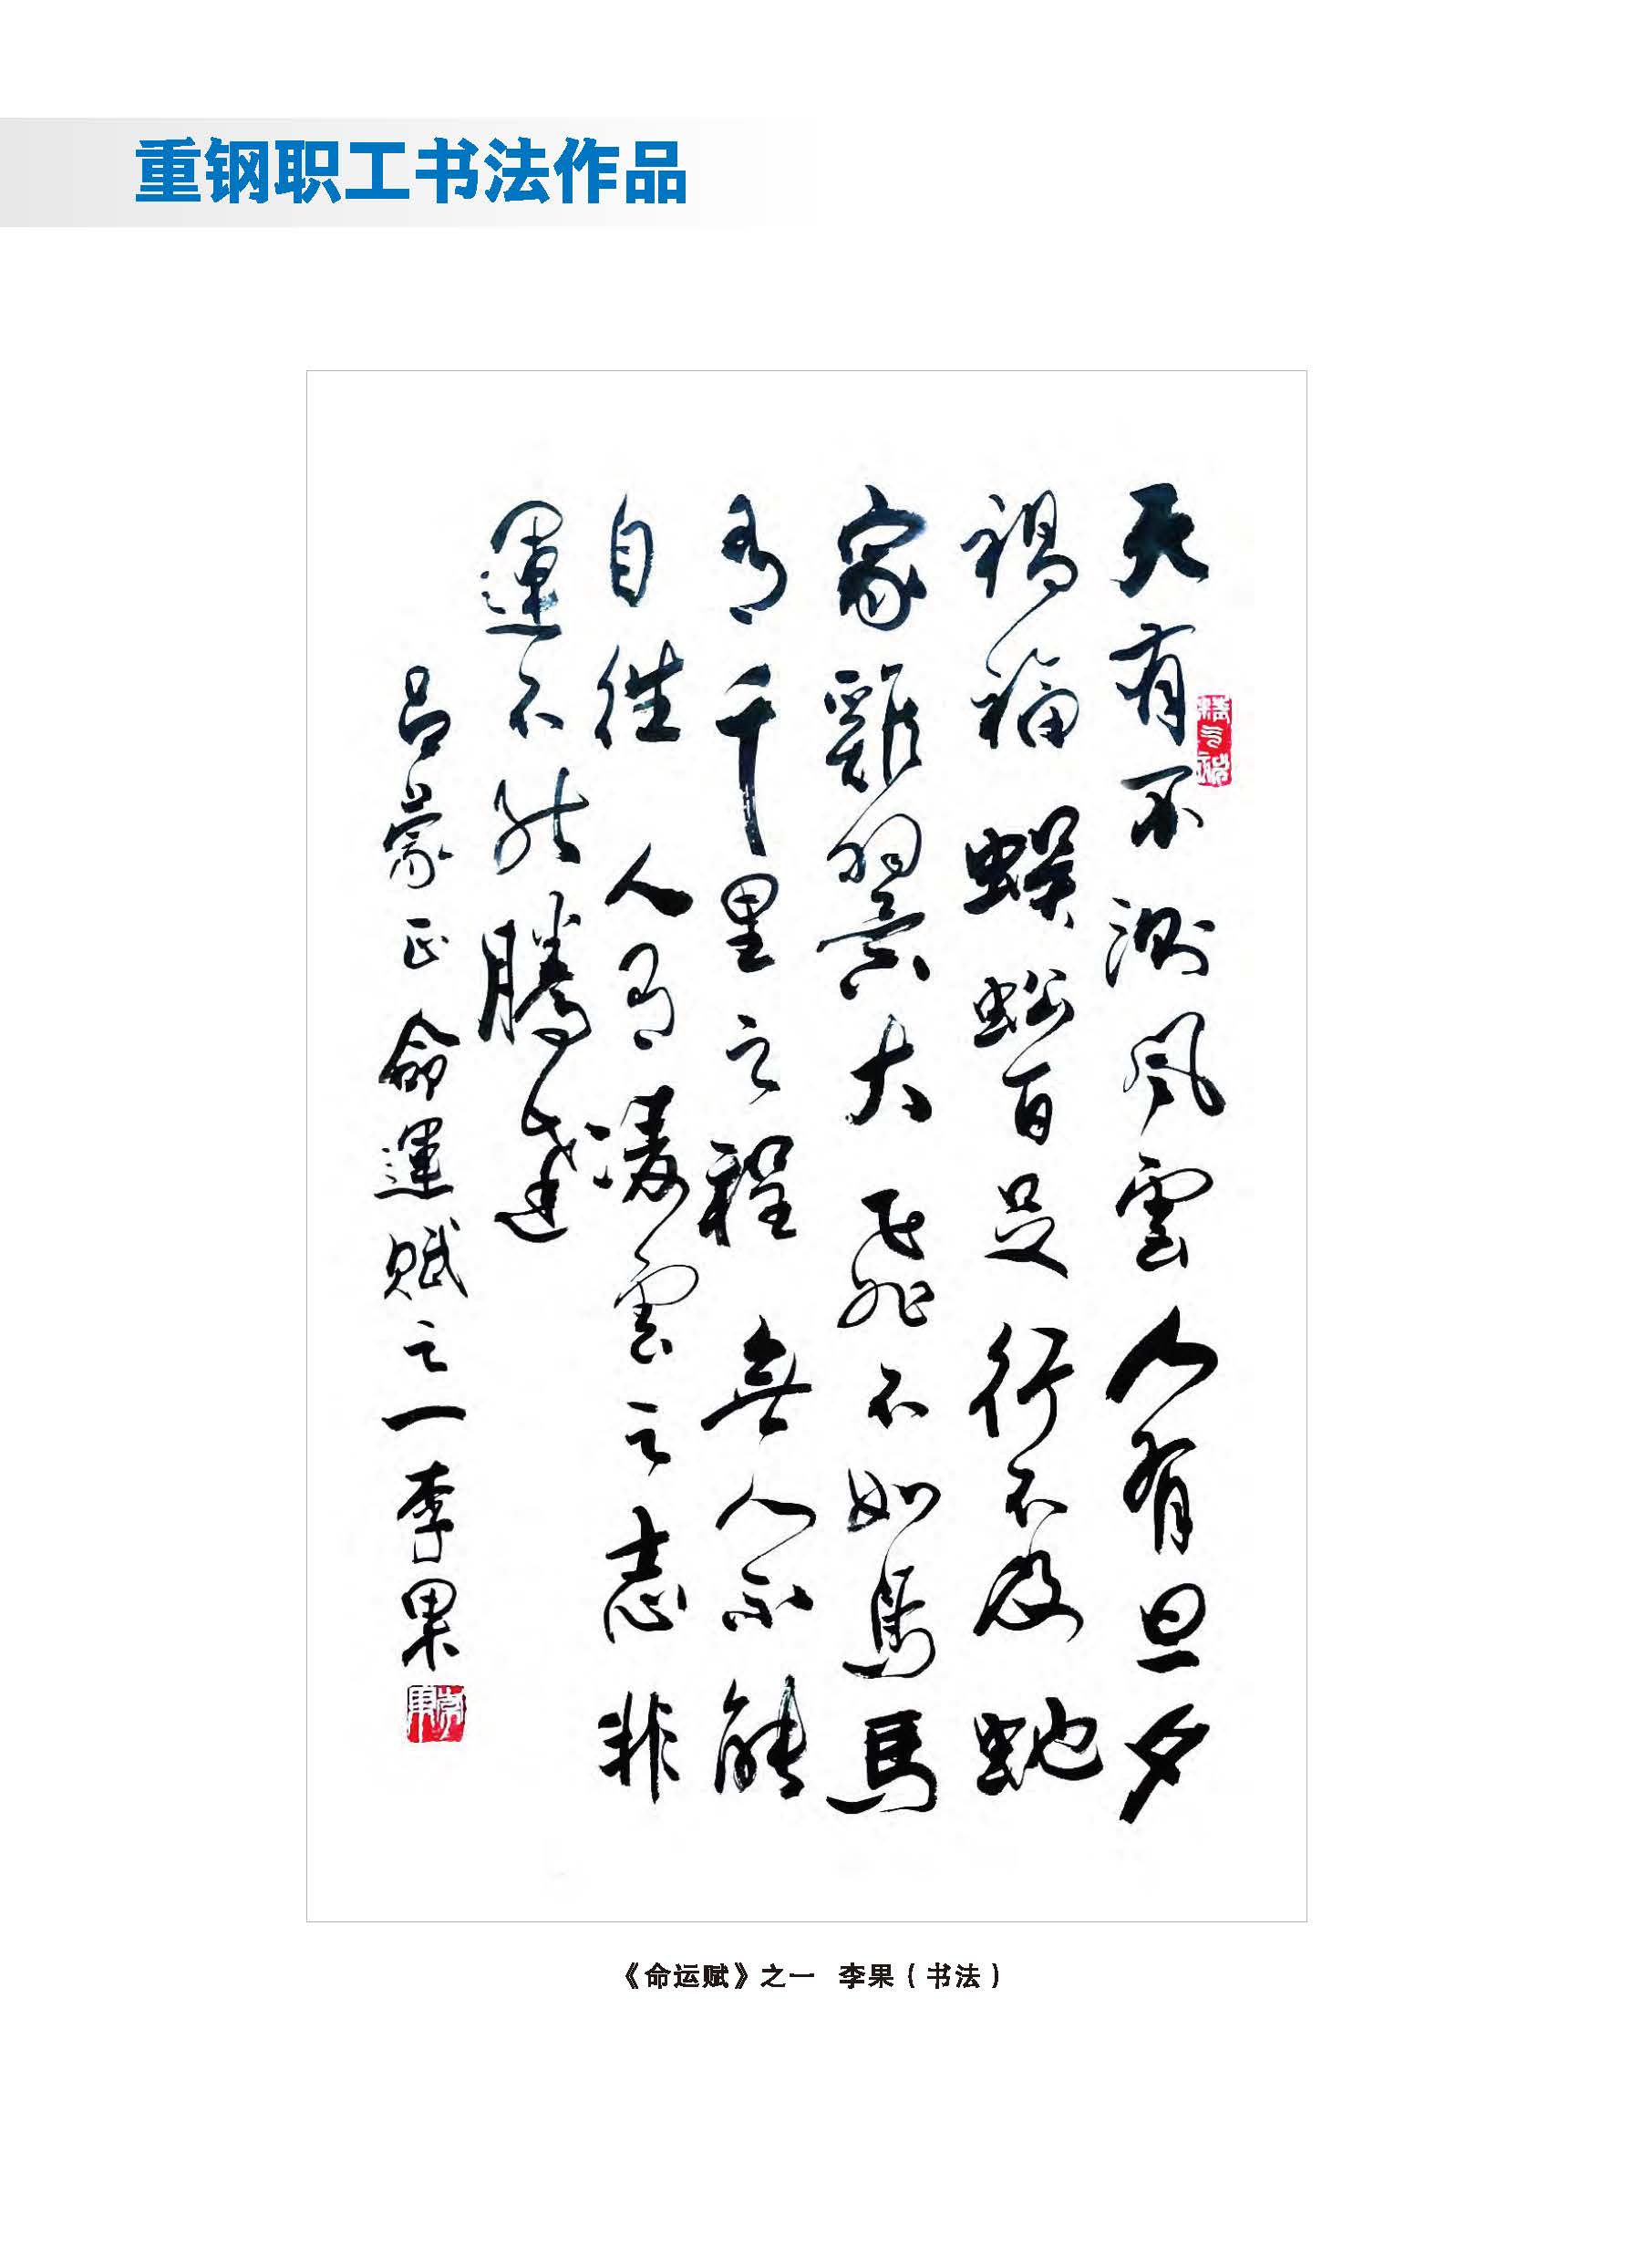 重钢职工书法作品
天有不測風雲人有旦夕
禍福蜈蚣百足行不及蛇
家雞翼大飛不如鳥馬
有千里之程無人不能
自往人有凌雲之志非
運不能騰達
吕蒙正命運賦之一李果
精气神
《命运赋》之一 李果（书法）